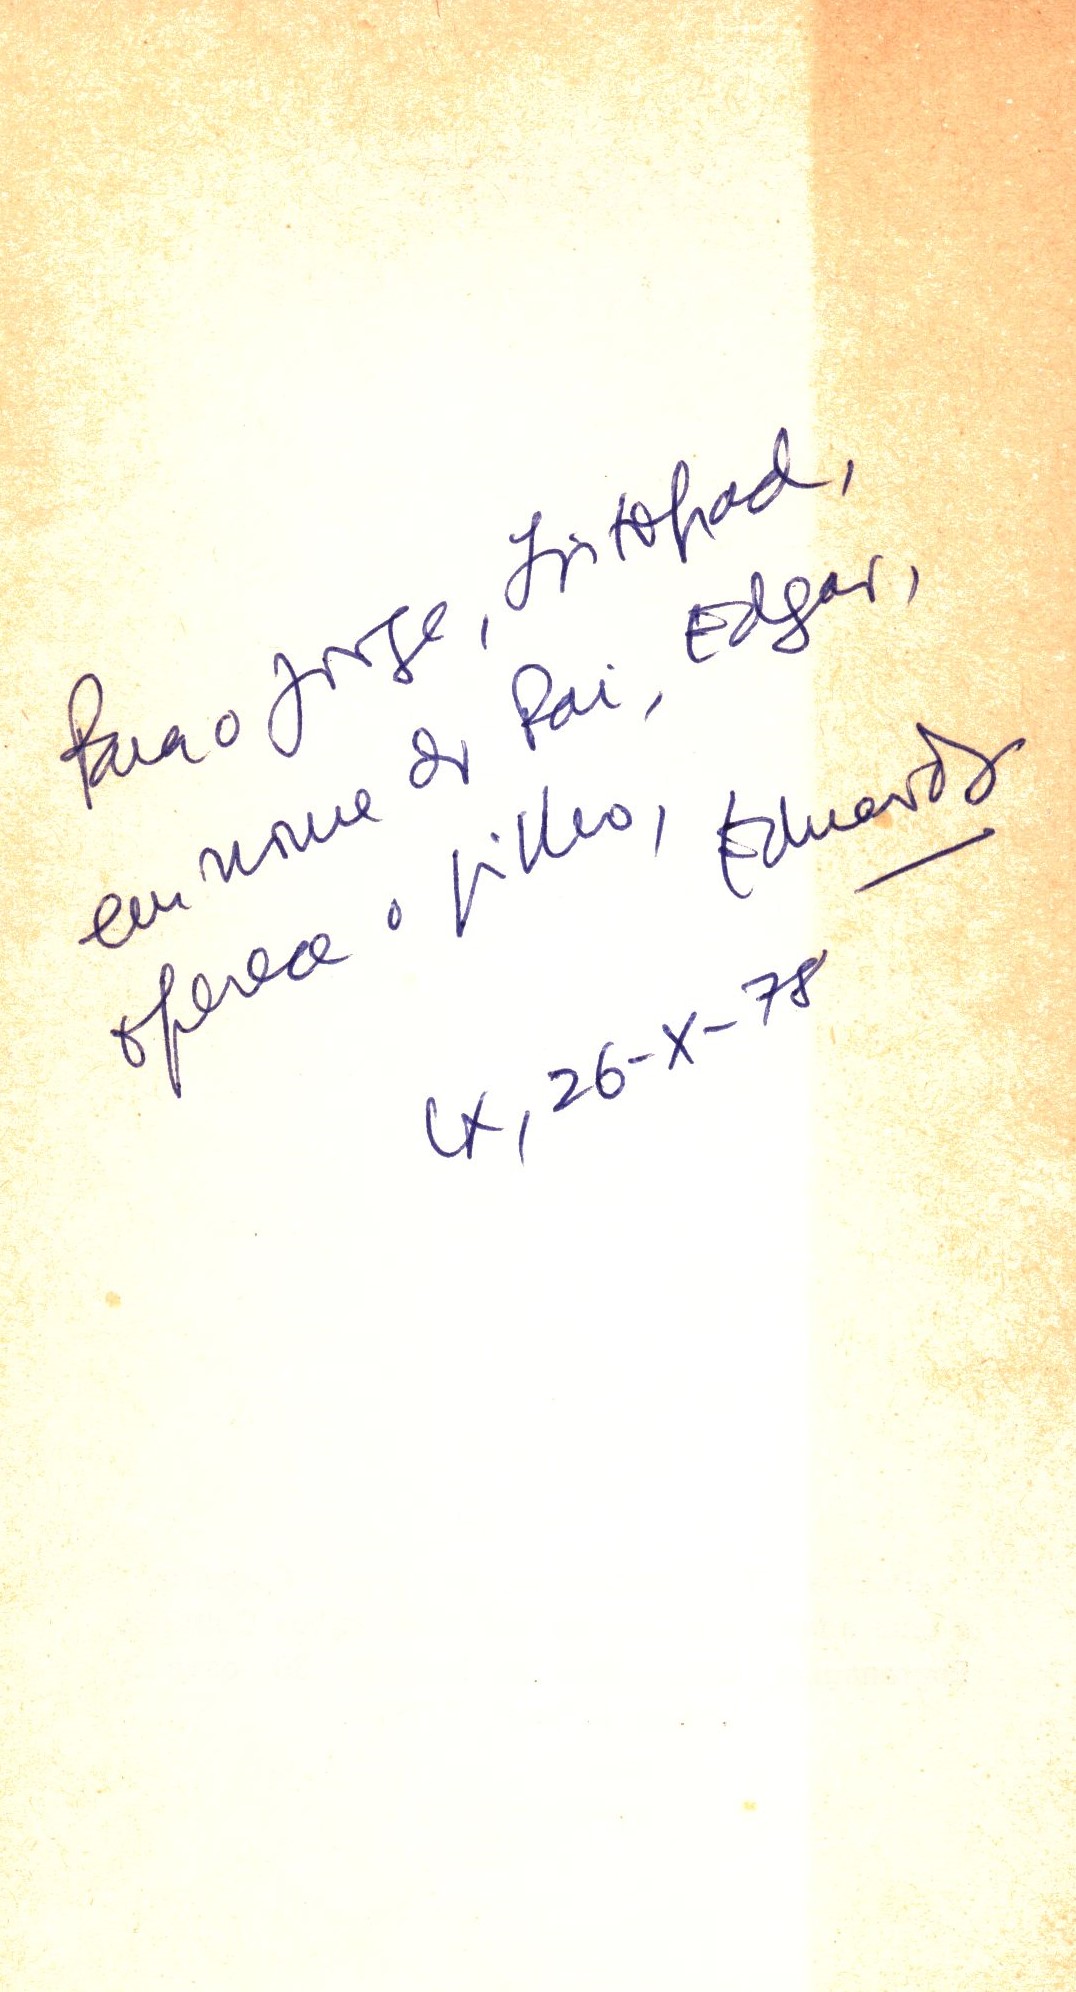 Para o Jorge, Listopad,
em nome do Pai, Edgar,
oferece o filho, Eduardo
Lx, 26-X-78